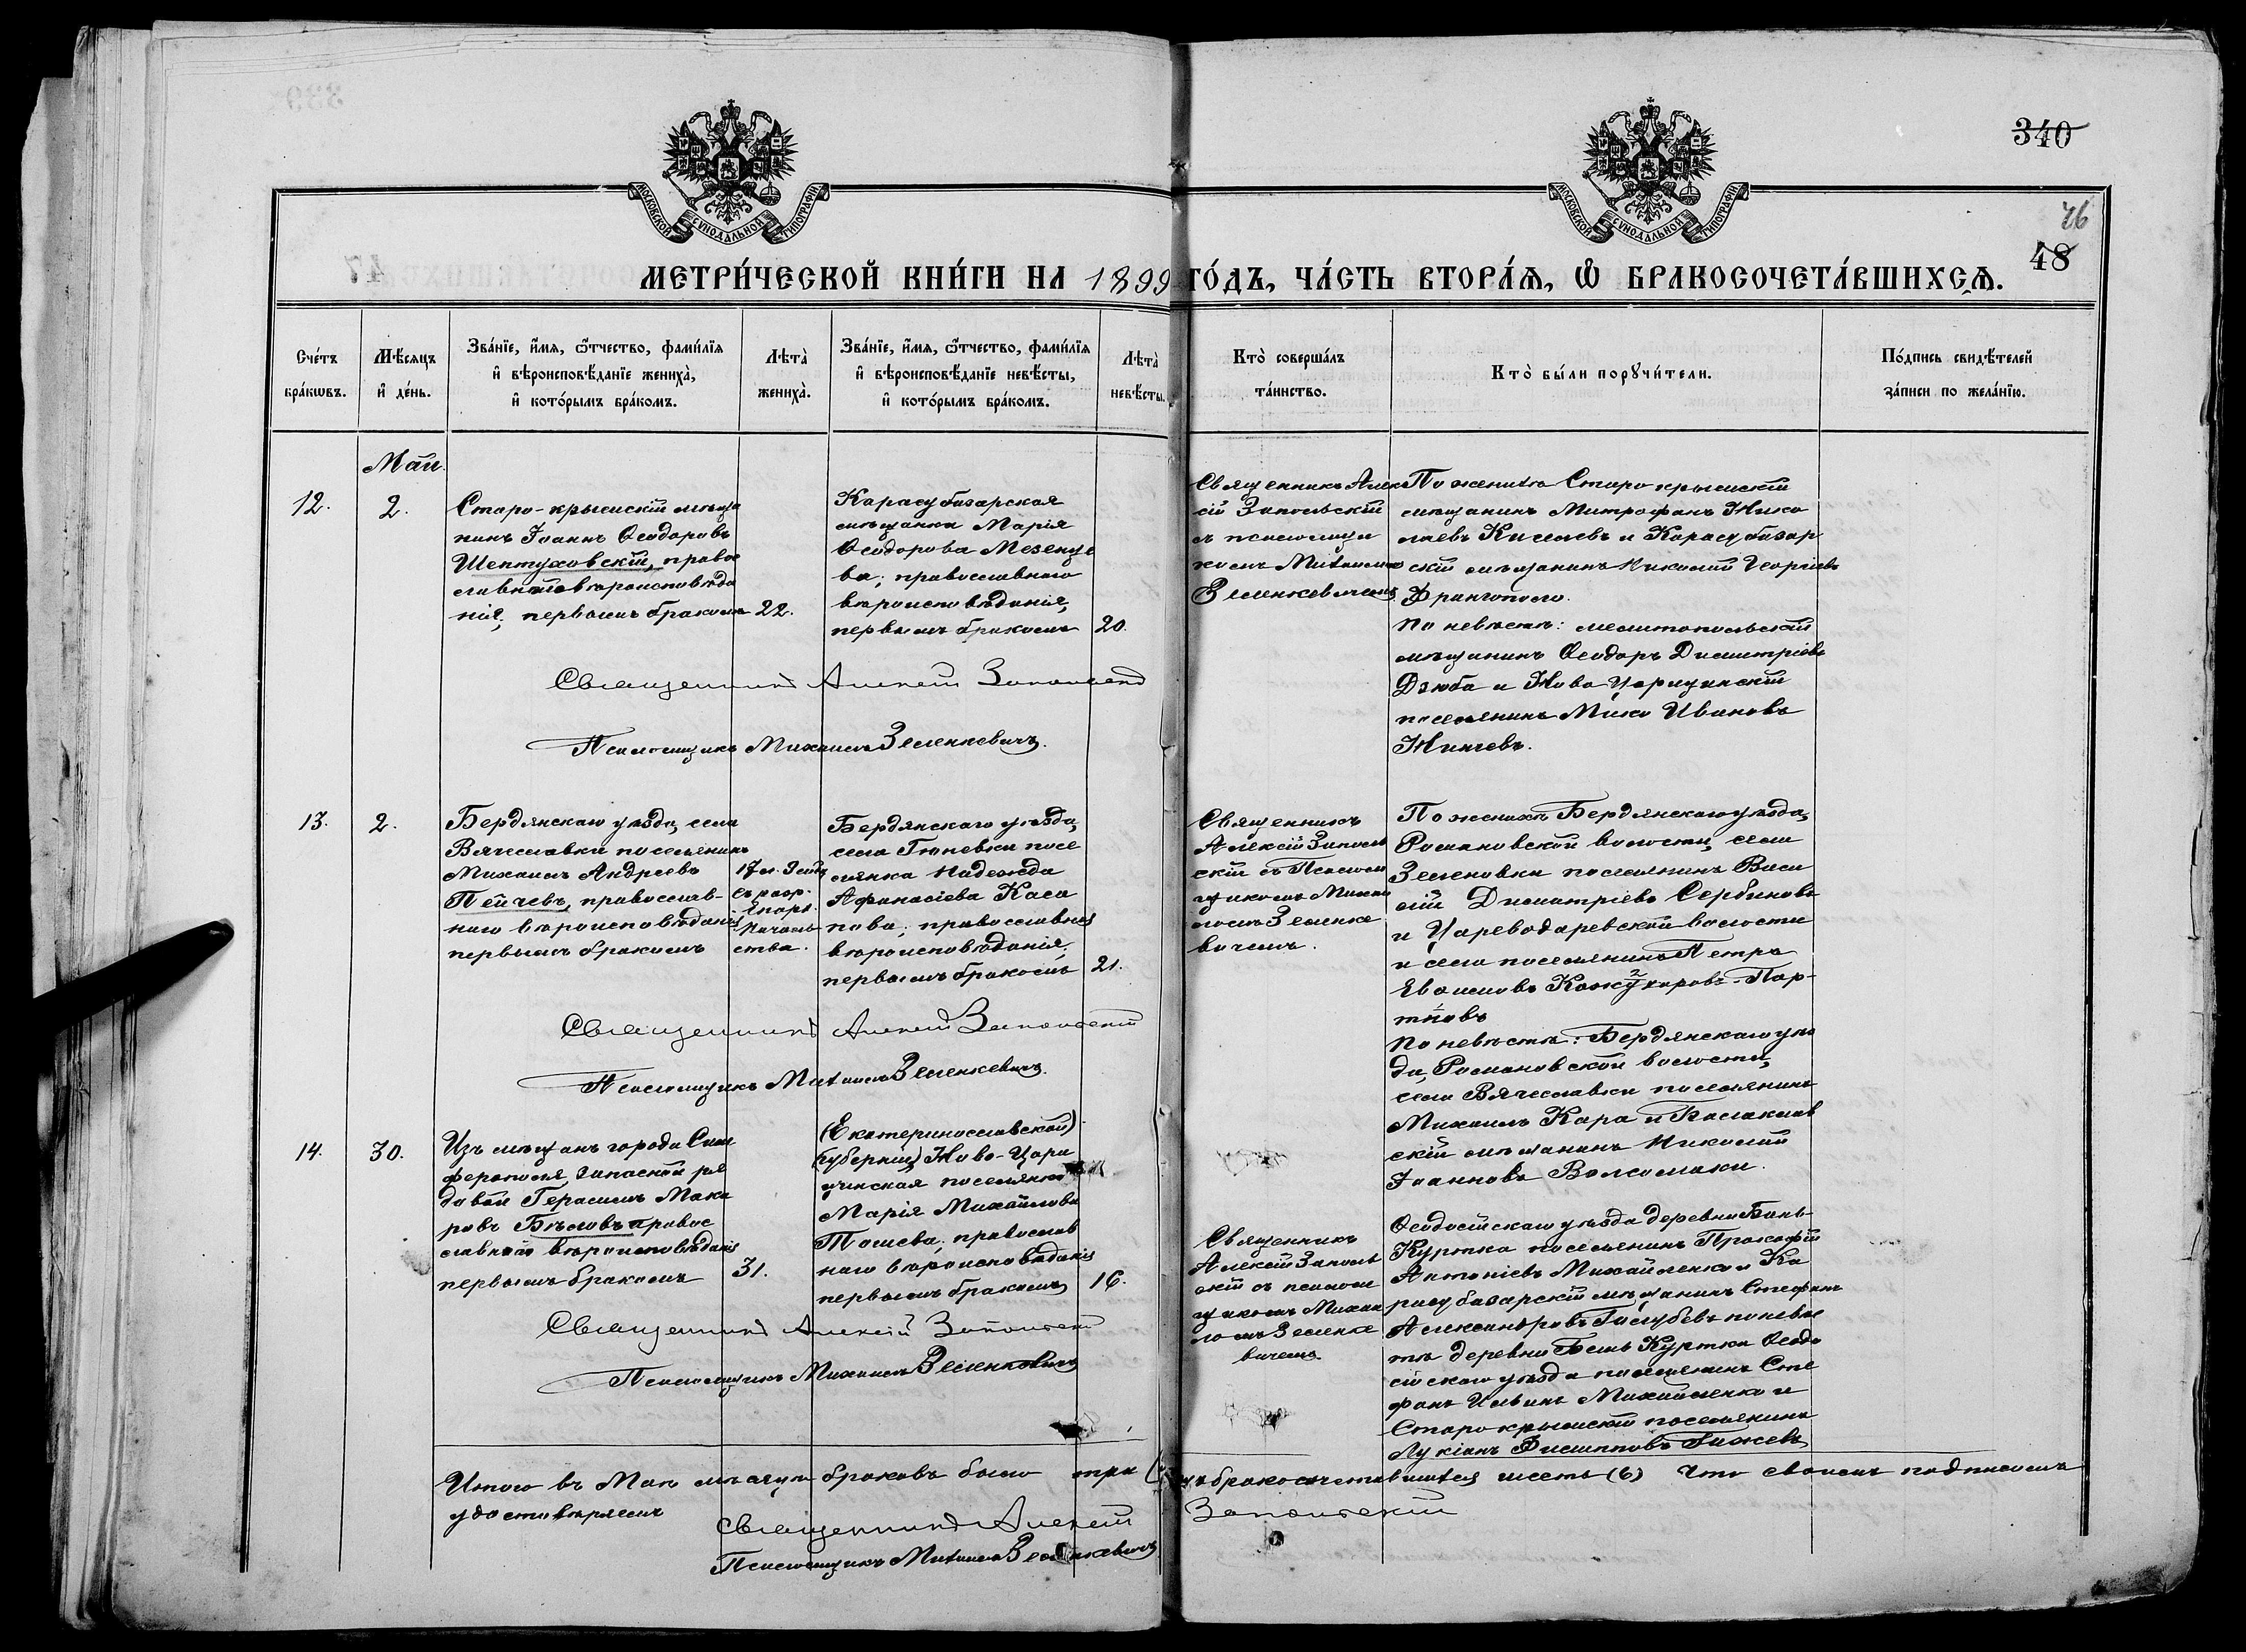 340
46
48
МОСКОВСКОЙ СѴНОДАЛЬНОЙ ТИПОГРАФІИ
МОСКОВСКОЙ СѴНОДАЛЬНОЙ ТИПОГРАФІИ
МЕТРИ́ЧЕСКОЙ КНИ́ГИ НА 1899 ГО́ДЪ, ЧА́СТЬ ВТОРА́Ѧ, Ѡ҆ БРАКОСОЧЕТА́ВШИХСѦ.
Сче́тъ
бра́кѡвъ.
Мѣ́сяцъ
и҆ де́нь.
Зва́нїе, и҆́мя, ѻ҆́тчество, фами́лїя
и҆ вѣроисповѣ́данїе жениха̀,
и҆ кото́рымъ бра́комъ.
Лѣта̀
жениха̀.
Зва́нїе, и҆́мя, ѻ҆́тчество, фами́лїя
и҆ вѣроисповѣ́данїе невѣ́сты,
и҆ кото́рымъ бра́комъ.
Лѣта̀
невѣ́сты.
Кто̀ соверша́лъ
та́инство.
Кто̀ бы́ли порꙋчи́тели.
По́дпись свидѣ́телей
за́писи по жела́нїю.
Май.
12.
2.
Старо-крымскій мѣща
нинъ Іоаннъ Ѳеодоровъ
Шептуховскій, правос
славнаго вѣроисповѣда
нія; первымъ бракомъ
22.
Карасубазарская
мѣщанка Марія
Ѳеодорова Мезенце
ва; православнаго
вѣроисповѣданія,
первымъ бракомъ
20.
Священникъ Алек
сій Запольскій
съ псаломщи
комъ Михаиломъ
Зеленкевичемъ
По жениху Старокрымскій
мѣщанинъ Митрофанъ Нико
лаевъ Киселевъ и Карасубазар
скій мѣщанинъ Николай Георгіевъ
Франгополо.
По невѣстѣ: мелитопольскій
мѣщанинъ Ѳеодоръ Димитріевъ
Дзюба и Ново-Царицынскій
поселянинъ Ивановъ
Священникъ Алексій Запольскій
Псаломщикъ Михаилъ Зеленкевичъ.
13.
2.
Бердянскаго уѣзда, села
Вячеславки поселянинъ
Михаилъ Андреевъ
Пейчевъ, православ-
наго вѣроисповѣданія
первымъ бракомъ
съ разр.
Епарх.
Началь
ства.
Бердянскаго уѣзда,
села Гюневки посе
лянка Надежда
Афанасіева Каса
пова; православнаго
вѣроисповѣданія;
первымъ бракомъ
21.
Священникъ
Алексій Заполь
скій съ Псалом
щикомъ Михаи
ломъ Зеленке
вичемъ.
По женихѣ Бердянскаго уѣзда,
Романовской волости, села
Зеленовки поселянинъ Васи
лій Димитріевъ Сербиновъ
и Цареводаревской волости
и села поселянинъ Петръ
Пар-
По невѣстѣ: Бердянскаго уѣз
да, Романовской волости,
села Вячеславки поселянинъ
Михаилъ Кара и Балаклав
скій мѣщанинъ Николай
Іоанновъ
Священникъ Алексій Запольскій
Псаломщикъ Михаилъ Зеленкевичъ.
14.
30.
Изъ мѣщанъ города Сим
ферополя, запасный ря
довой Герасимъ Мака
ровъ Бѣловъ правос
славнаго вѣроисповѣданія
первымъ бракомъ
31.
(Екатеринославской)
(губерніи) Ново-Цари
цынская поселянка
Марія Михайлова
Тошева; православ
наго вѣроисповѣданія
первымъ бракомъ
16.
Священникъ
Алексій Заполь
скій съ псалом
щикомъ Михаи
ломъ Зеленке
вичемъ
Ѳеодосійскаго уѣзда деревни
поселянинъ Прокофій
Антоніевъ Михайленко и Ка
расубазарскій мѣщанинъ Стефанъ
Александровъ Голубевъ по невѣс
тѣ деревни Бешъ Куртка Ѳеодо
сійскаго уѣзда поселянинъ Сте
фанъ Ильинъ Михайленко и
Старокрымскій поселянинъ
Лукіанъ Филипповъ
Священникъ Алексій Запольскій
Псаломщикъ Михаилъ Зеленкевичъ
Итого въ Маѣ мѣсяцѣ браковъ было три бракосочетавшихся шесть (6) Что своимъ подписомъ
удостовѣряемъ
Священникъ Алексій Запольскій
Псаломщикъ Михаилъ Зеленкевичъ